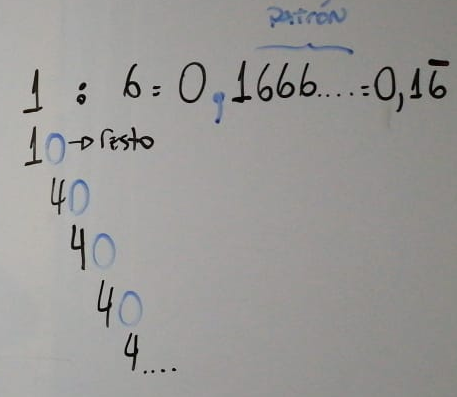 PATRÓN
1 : 6 = 0,1666.... = 0,16̅
10 → resto
40
40
40
4....